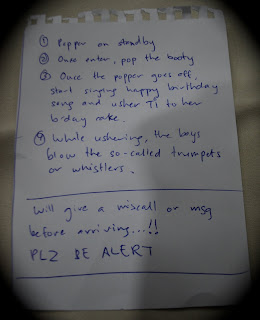 ① Popper on standby
② Once enter, pop the booty
③ Once the popper goes off,
start singing happy birthday
song and usher Ti to her
b'day cake.
④ While ushering, the boys
blow the so-called trumpets
or whistlers.
Will give a miscall or msg
before arriving...!!
PLZ BE ALERT